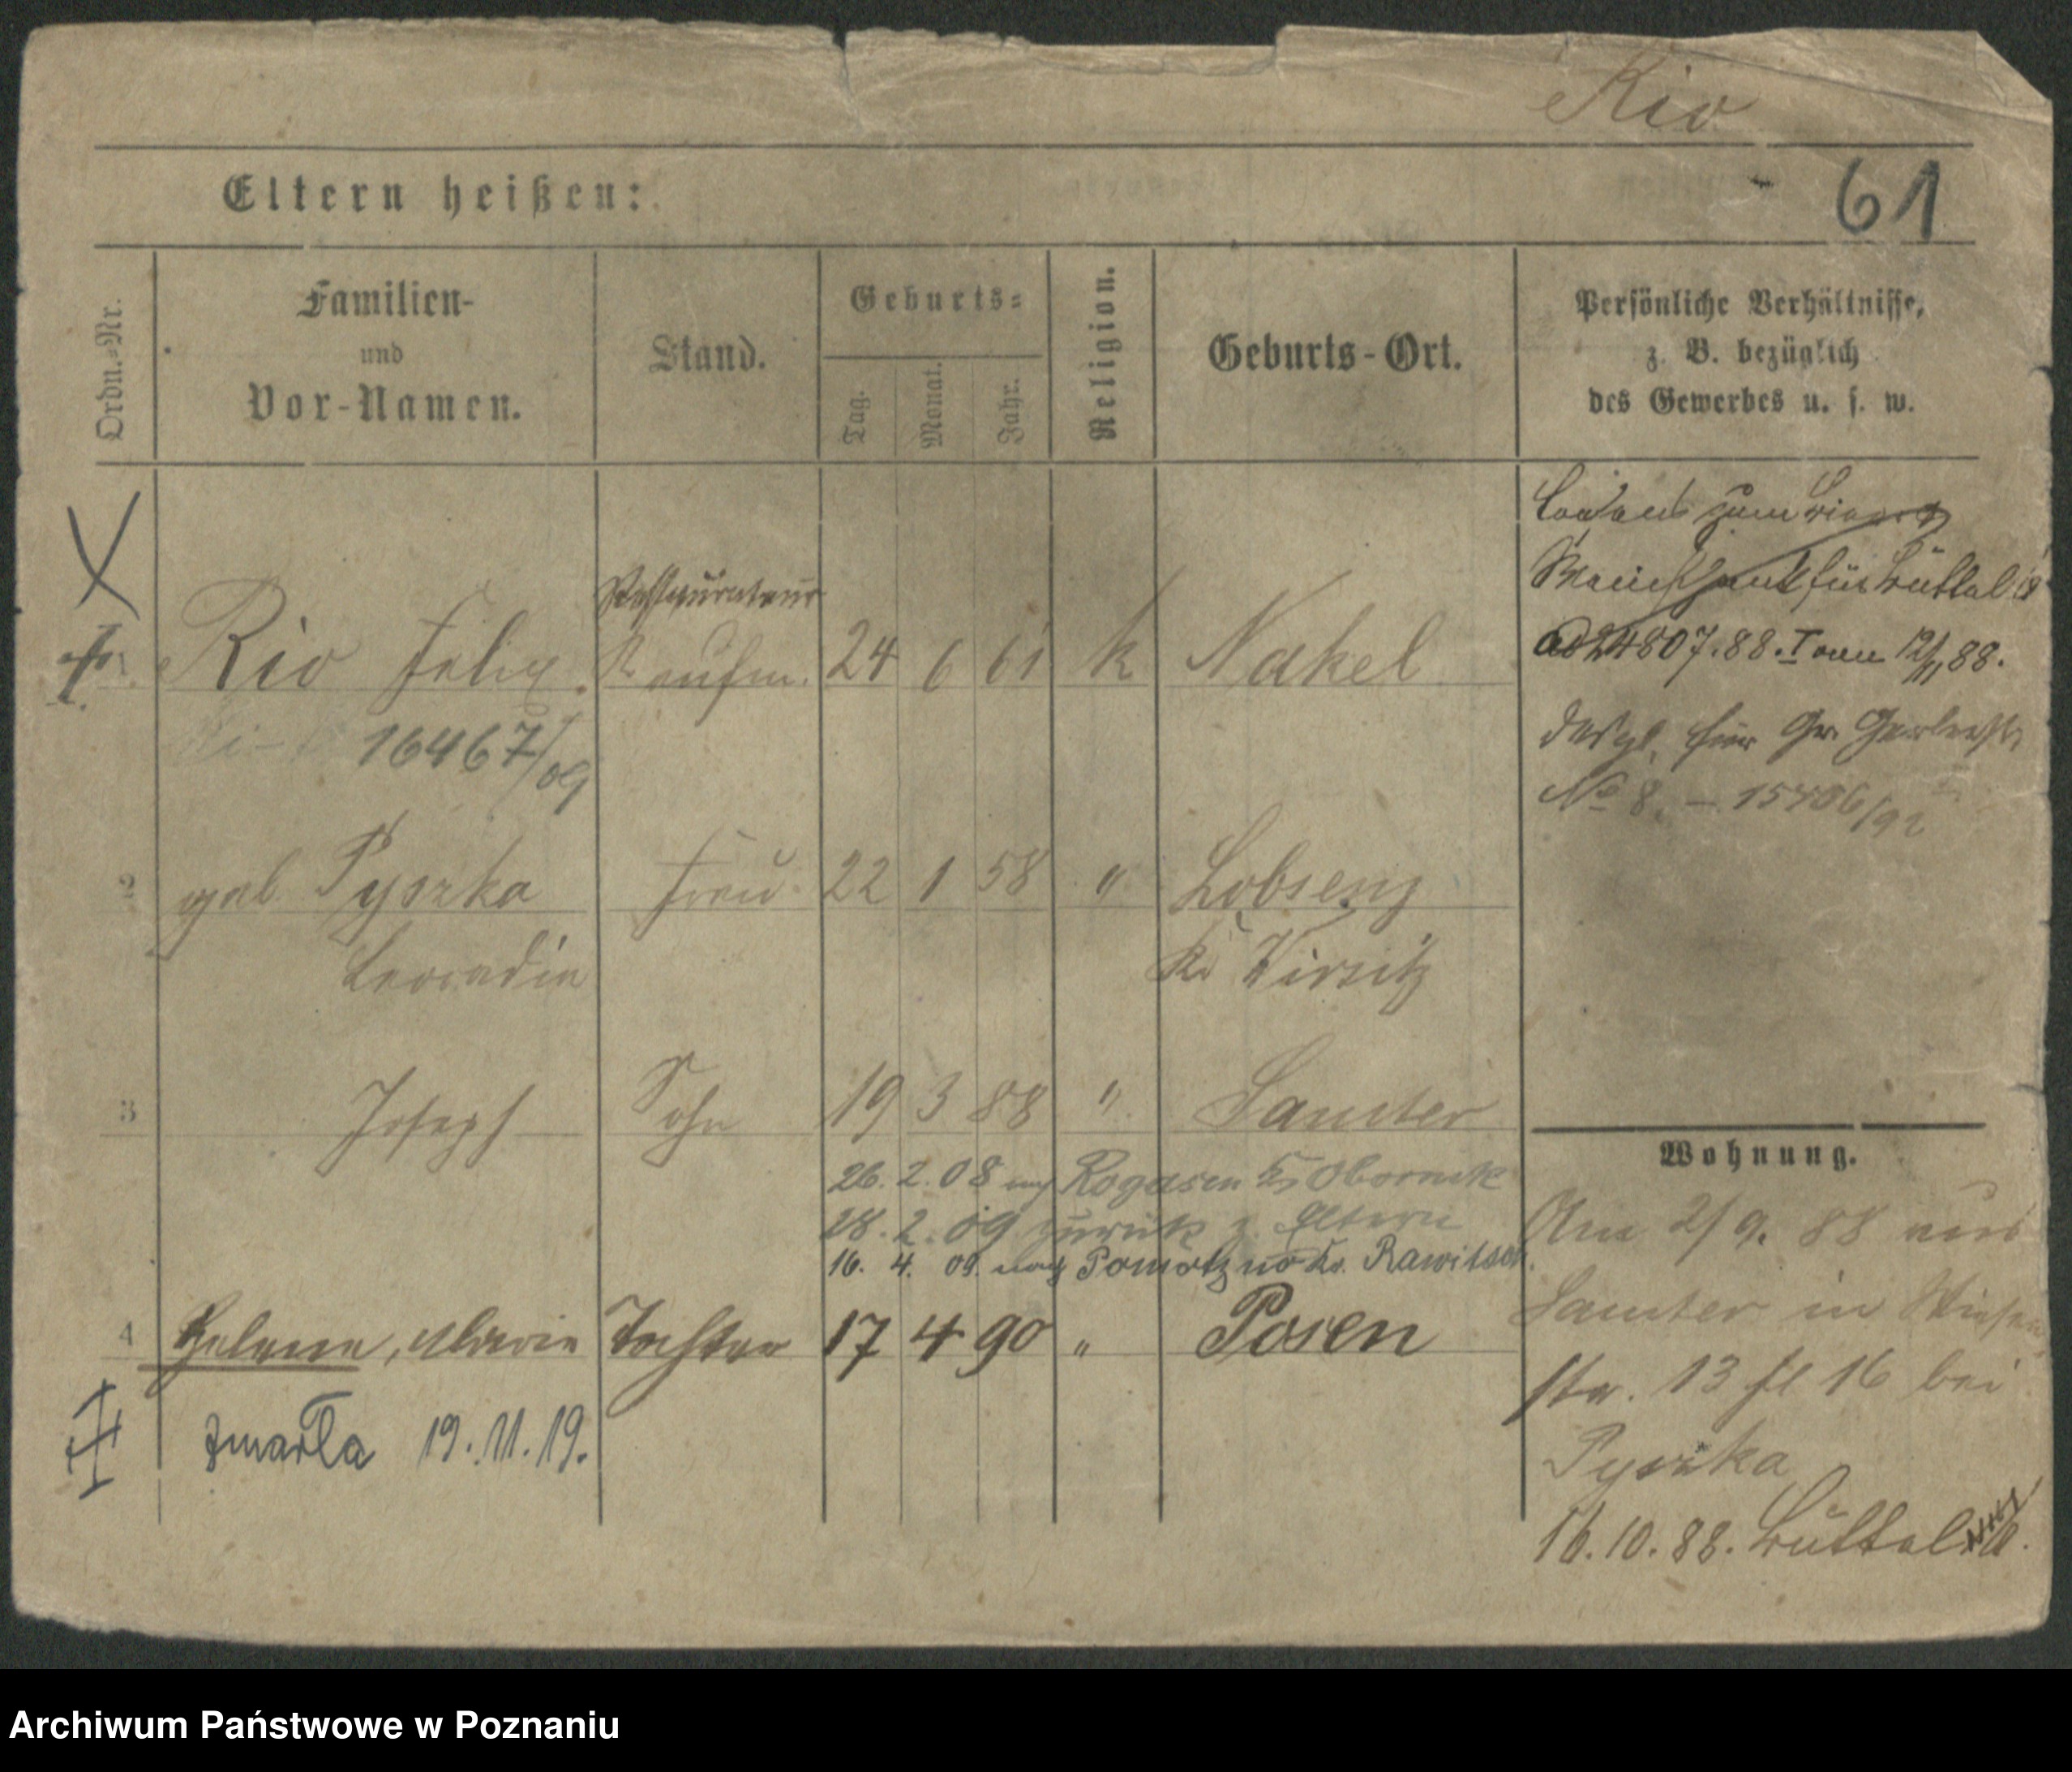 Rio
Eltern heißen:
61
Ordn.-Nr.
Familien-
und
Vor-Namen.
Stand.
Geburts-
Tag.
Monat.
Jahr.
Religion.
Geburts-Ort.
Persönliche Verhältnisse,
z. B. bezüglich
des Gewerbes u. s. w.
Consens zum
für Büttelstr
ad 24807.88. I vom 12/11 88.
desgl. für Gr. Gerberstr
No 8. – 15406/92
Restaurateur
1 Rio Felix Kaufm. 24 6 61 k Nakel
16467/09
2 geb Pyszka Frau 22 1 58 " Lobsens
Leocadia Kr Wirsitz
3 Joseph Sohn 19 3 88 " Samter
26. 2. 08 nach Rogasen Kr Obornik
28. 2. 09 zurück z. Eltern
16. 4. 09. nach Kr. Rawitsch.
4 Helene, Marie Tochter 17 4 90 " Posen
zmarła 19.11.19.
Wohnung.
Am 2/9. 88 aus
Samter in Wiesen
str. 13 16 bei
Pyszka
16.10.88. Büttelstr